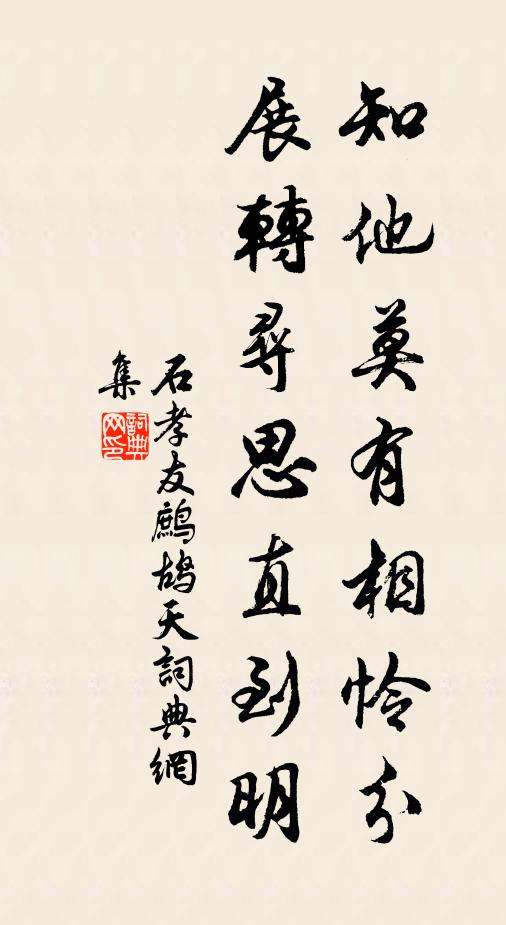 知他莫有相怜分
展轉尋思直到明
石孝友鷓鴣天詞典網
集
詞典网印